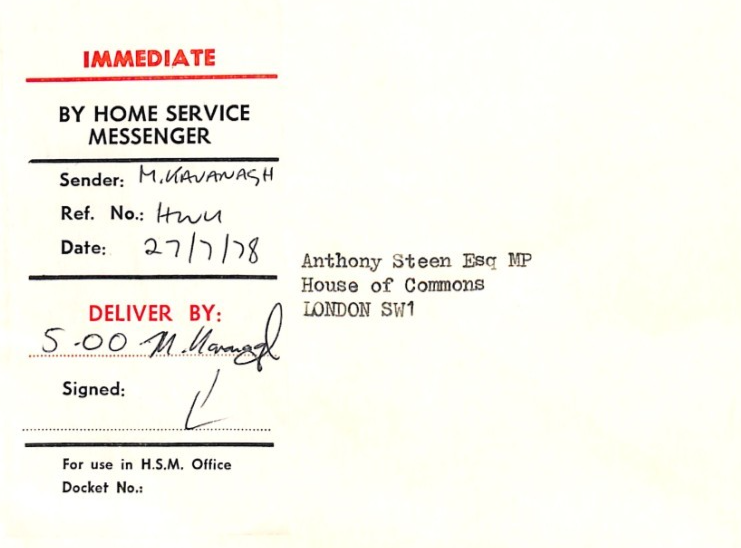 IMMEDIATE
BY HOME SERVICE
MESSENGER
Sender: M. KAVANAGH
Ref. No.: HWU
Date: 27/7/78
DELIVER BY:
5.00 M. Kavanagh
Signed:
For use in H.S.M. Office
Docket No.:
Anthony Steen Esq MP
House of Commons
LONDON SW1